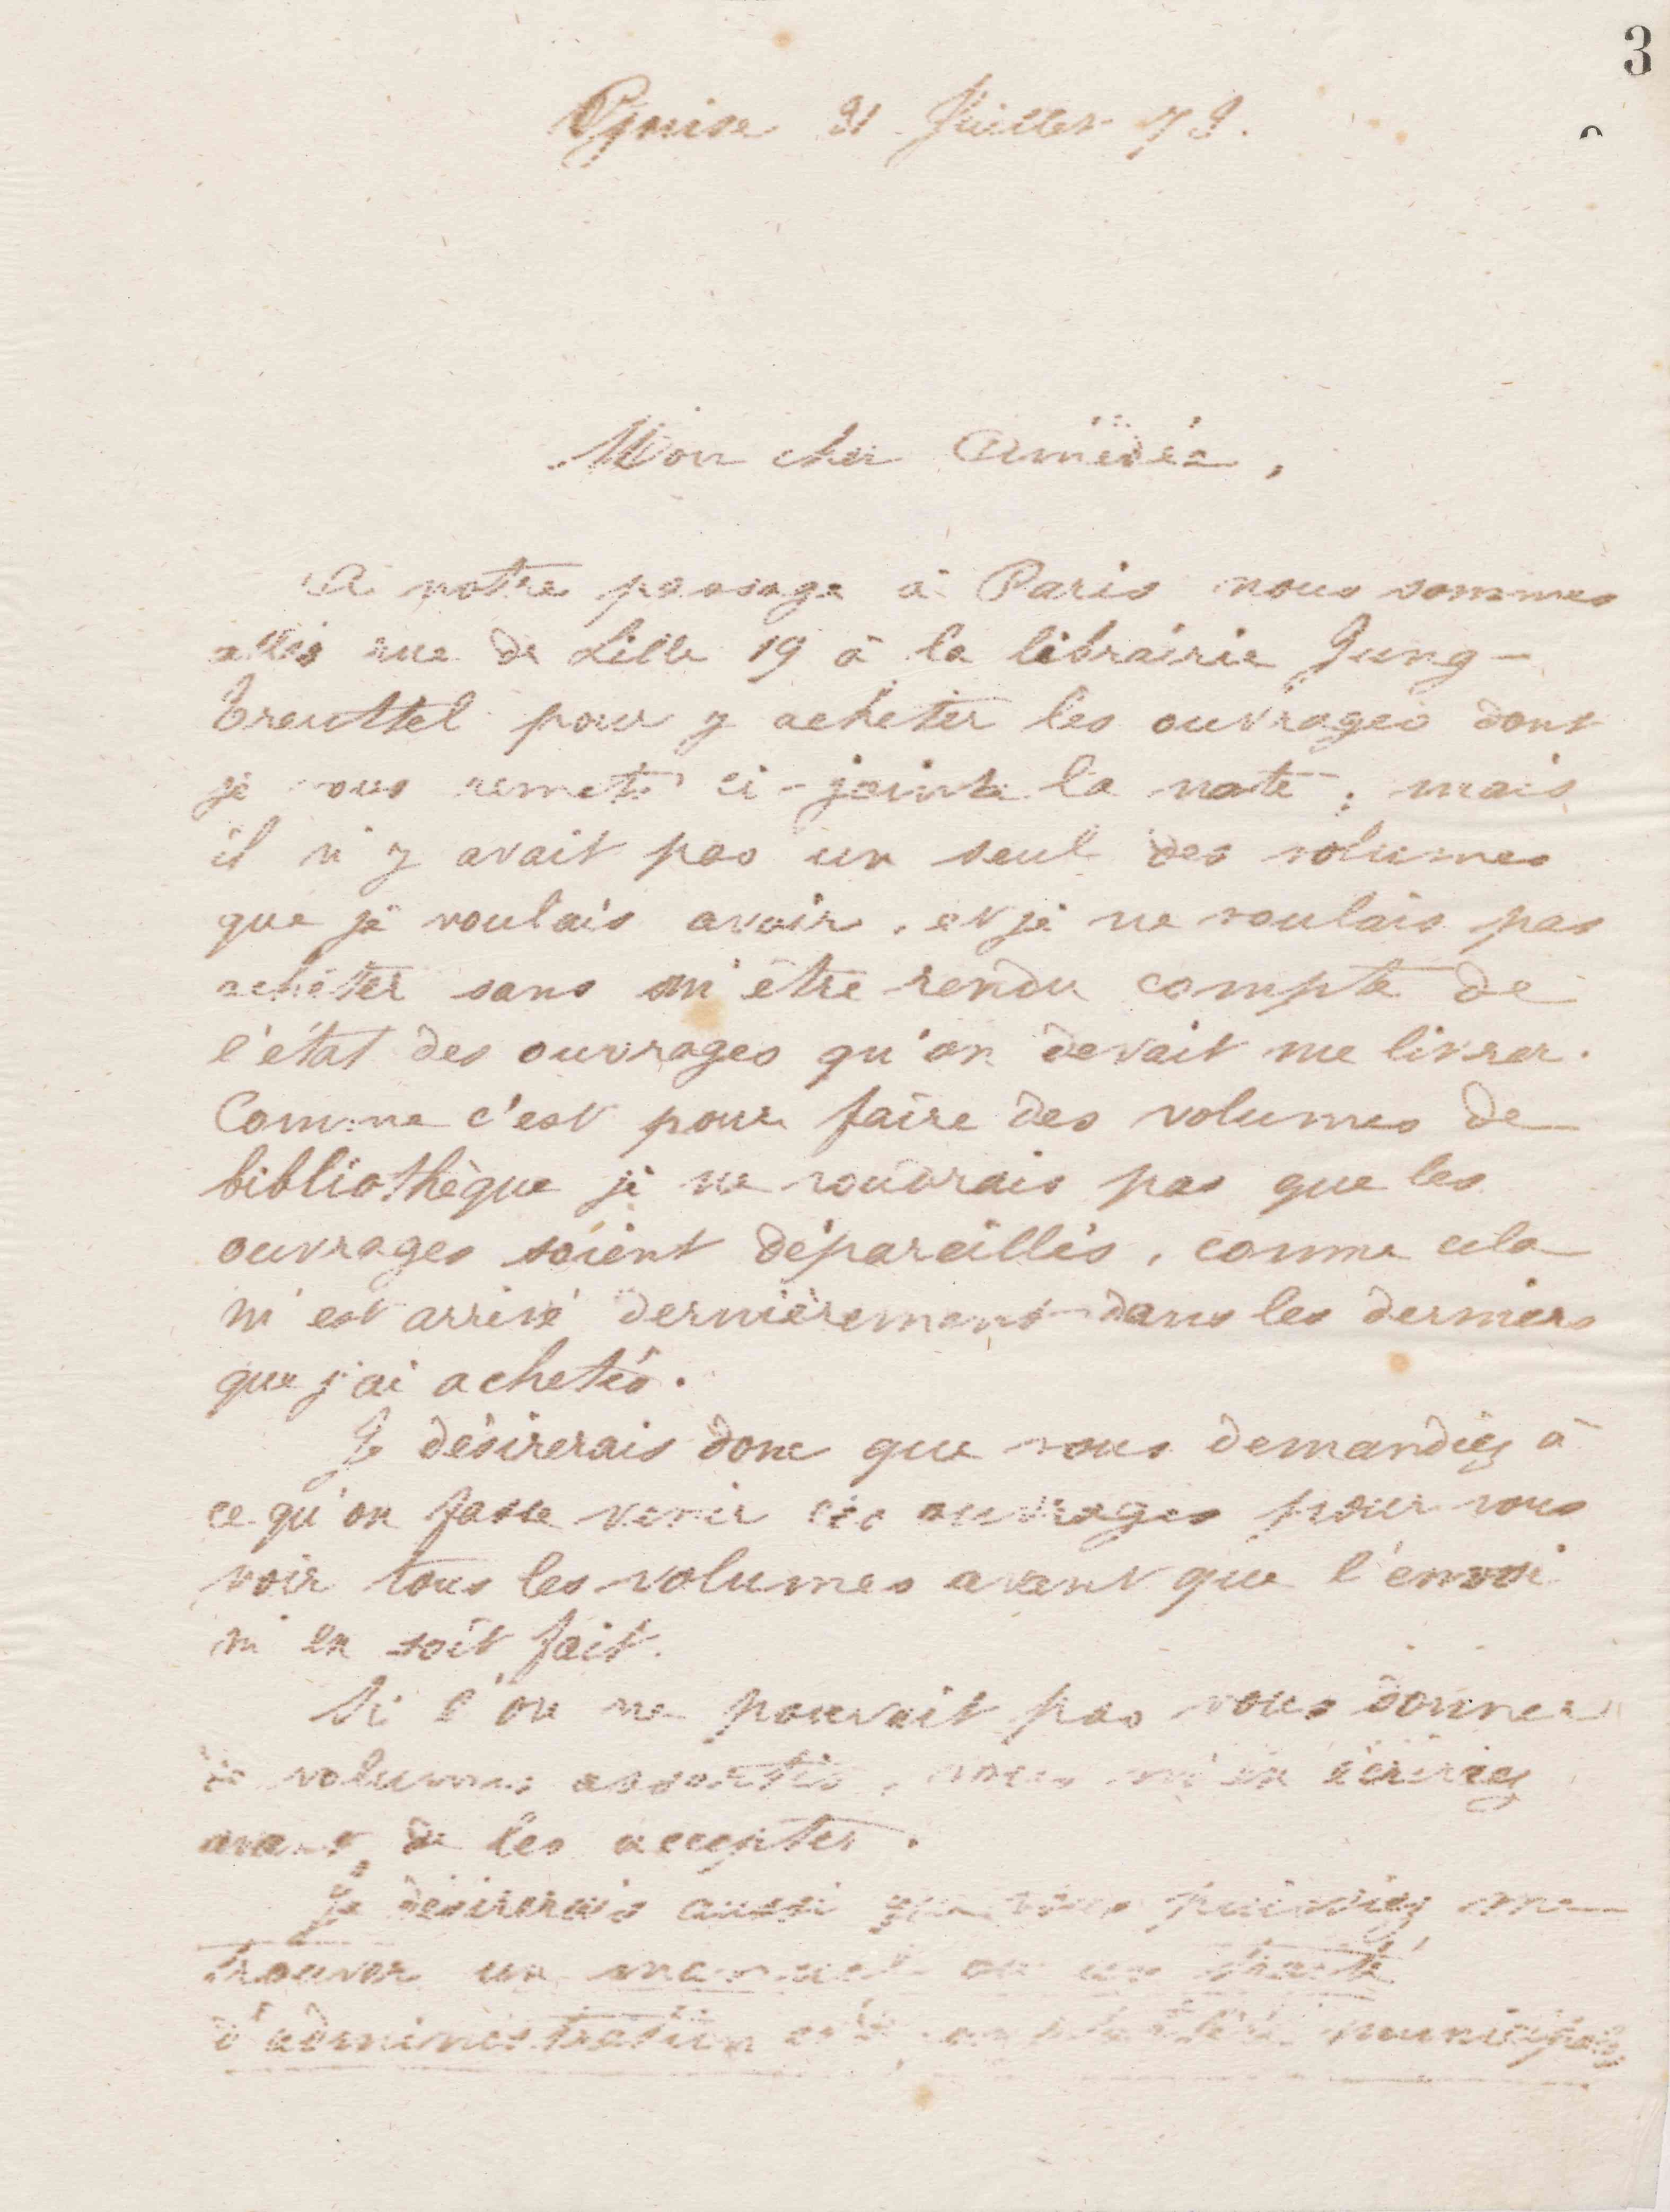 3
Guise 31 Juillet 73.
Mon cher Amédée,
A notre passage à Paris nous sommes
allés rue de Lille 19 à la librairie Jung-
Treuttel pour y acheter les ouvrages dont
je vous remets ci-jointe la note ; mais
il n'y avait pas un seul des volumes
que je voulais avoir, et je ne voulais pas
acheter sans m'être rendu compte de
l'état des ouvrages qu'on devait me livrer.
Comme c'est pour faire des volumes de
bibliothèque je ne voudrais pas que les
ouvrages soient dépareillés, comme cela
m'est arrivé dernièrement dans les derniers
que j'ai achetés.
Je désirerais donc que vous demandiez à
ce qu'on fasse venir ces ouvrages pour vous
voir tous les volumes avant que l'envoi
m'en soit fait.
Si l'on ne pouvait pas vous donner
de volumes assortis, vous m'en écririez
avant de les accepter.
Je désirerais aussi que vous puissiez me
trouver un manuel ou un traité
d'administration et de comptabilité municipales,